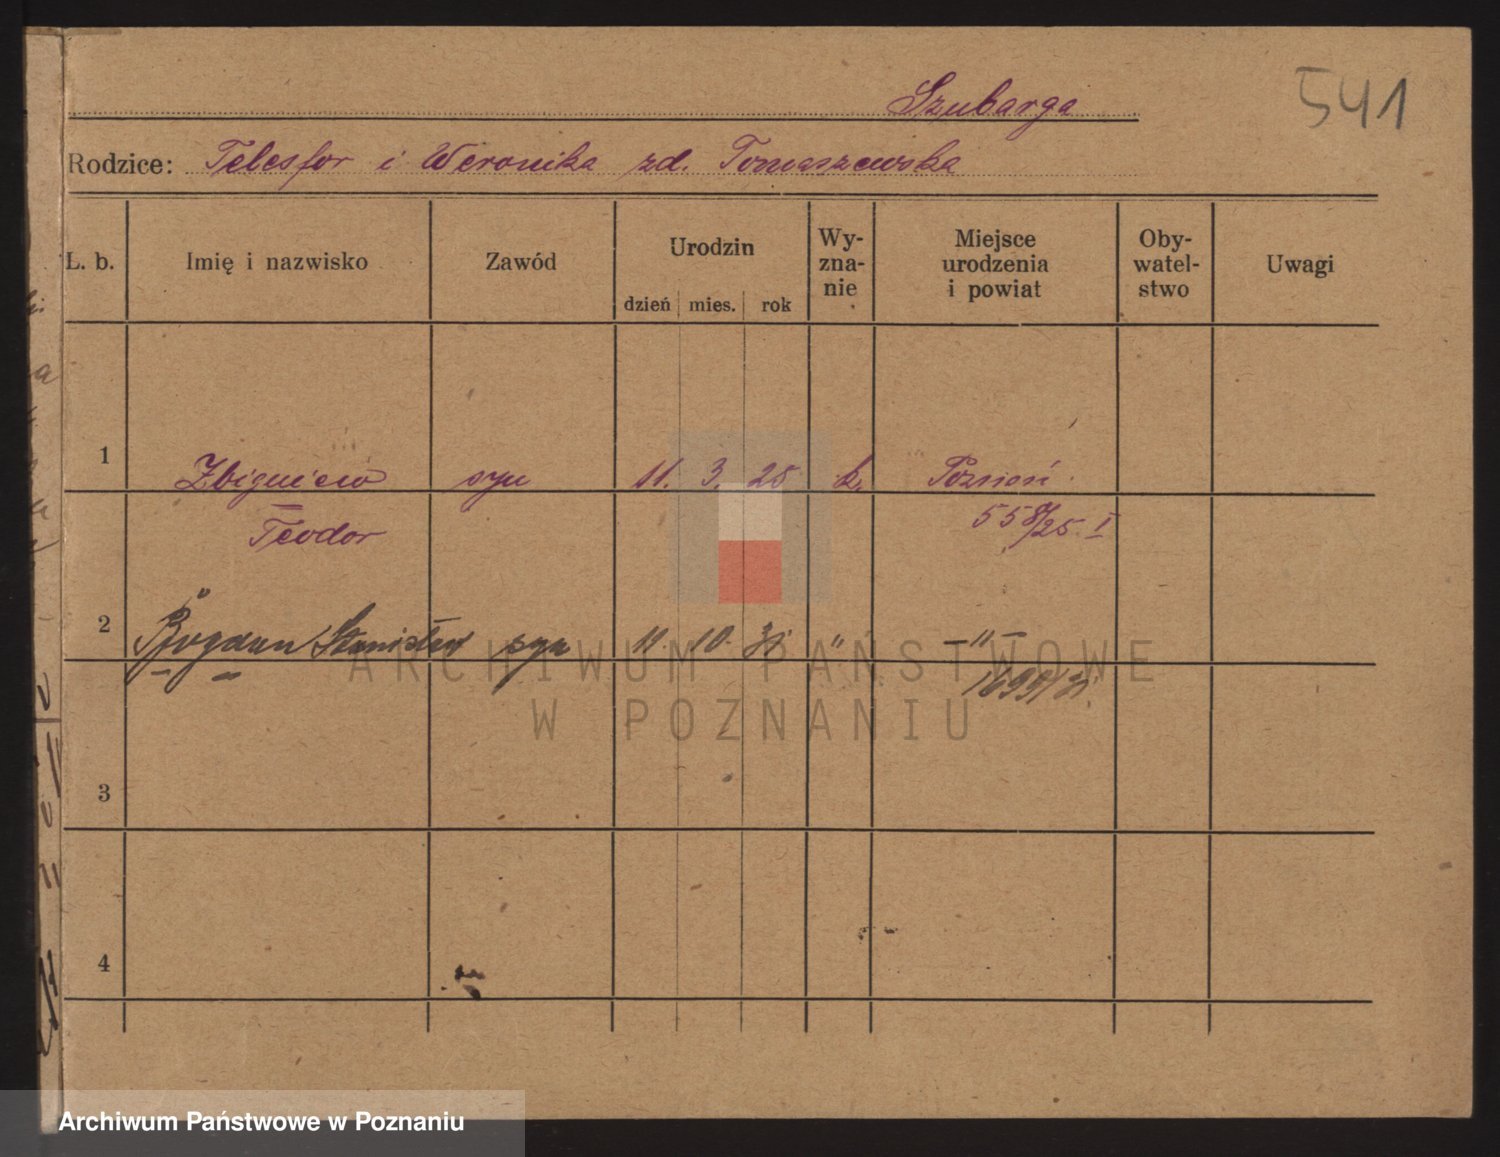 541
Szubarga
Rodzice: Telesfor i Weronika zd. Tomaszewska
L. b. Imię i nazwisko Zawód Urodzin Wyznanie Miejsce urodzenia i powiat Obywatelstwo Uwagi
dzień mies. rok
1 Zbigniew syn 11. 3. 25 k. Poznań
Teodor 558/25. I
2 Bogdan Stanisław syn 11. 10. 31 " —"—
1699/31.
3
4
ARCHIWUM PAŃSTWOWE
W POZNANIU
Archiwum Państwowe w Poznaniu